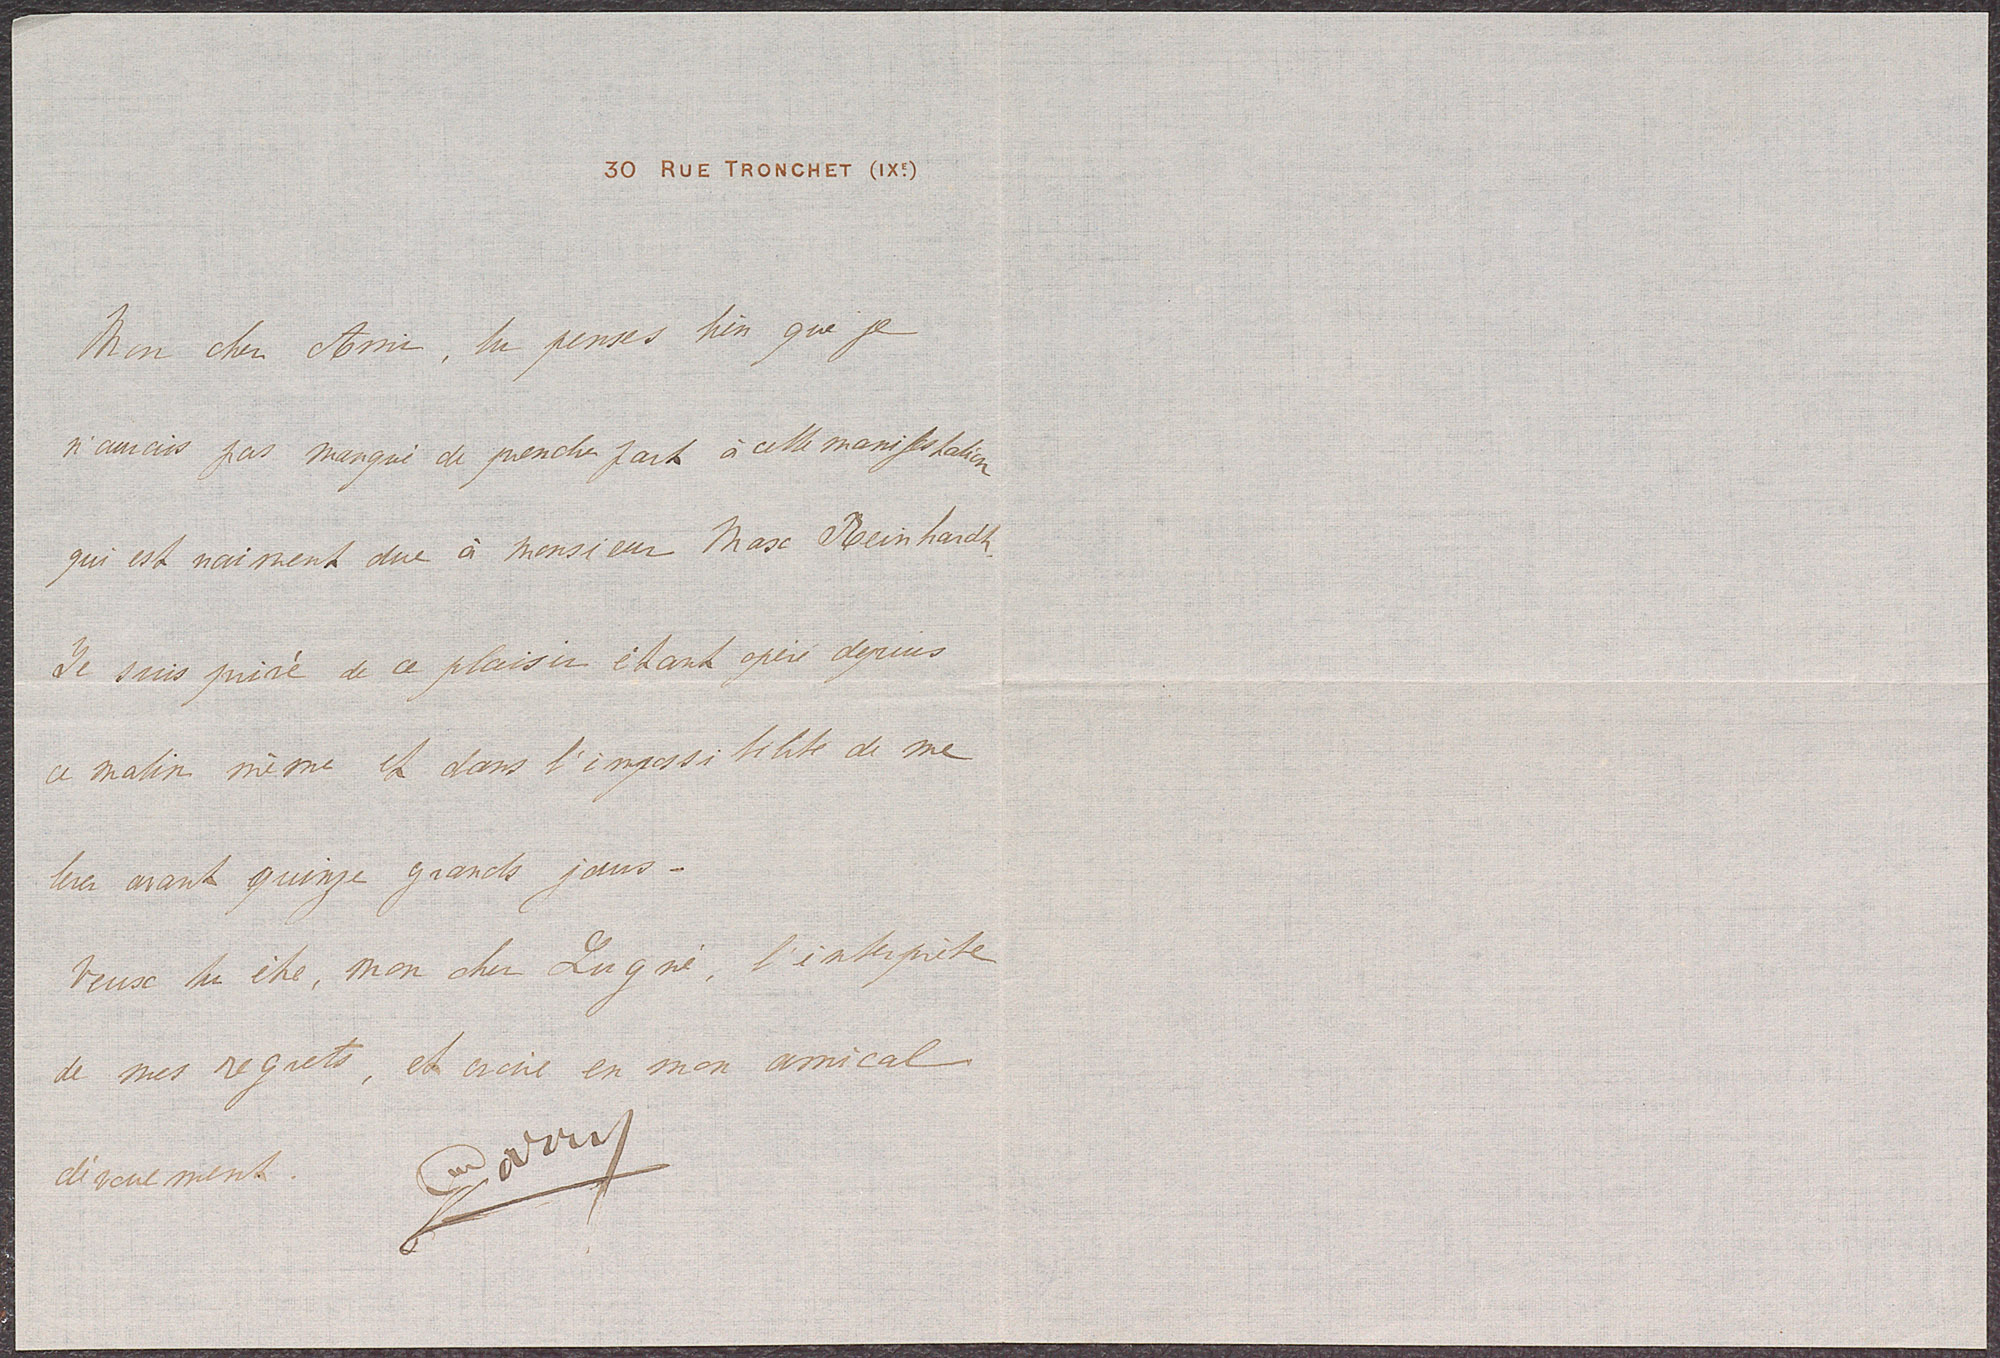 30 RUE TRONCHET (IXE)
Mon cher Ami, tu penses bien que je
n'aurais pas manqué de prendre part à cette manifestation
qui est vraiment due à monsieur Max Reinhardt.
Je suis privé de ce plaisir étant opéré depuis
ce matin même et dans l'impossibilité de me
lever avant quinze grands jours -
Veux tu être, mon cher Lugné, l'interprète
de mes regrets, et croire en mon amical
dévouement.